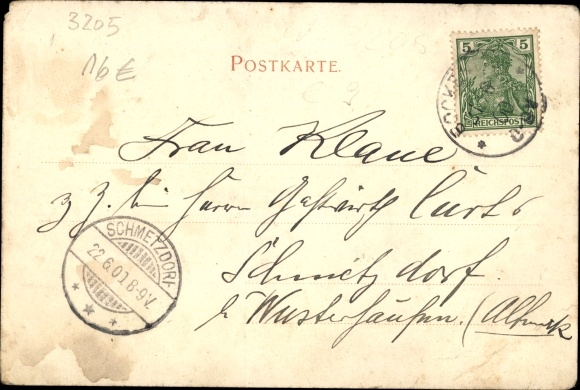 3205
16 €
POSTKARTE.
5 5
REICHSPOST
Frau Klaue
z. Z. bei Herrn Gastwirth Curts
SCHMETZDORF
22.6.01.8-9V.
Schmetzdorf.
b. Wusterhausen. (Altmark